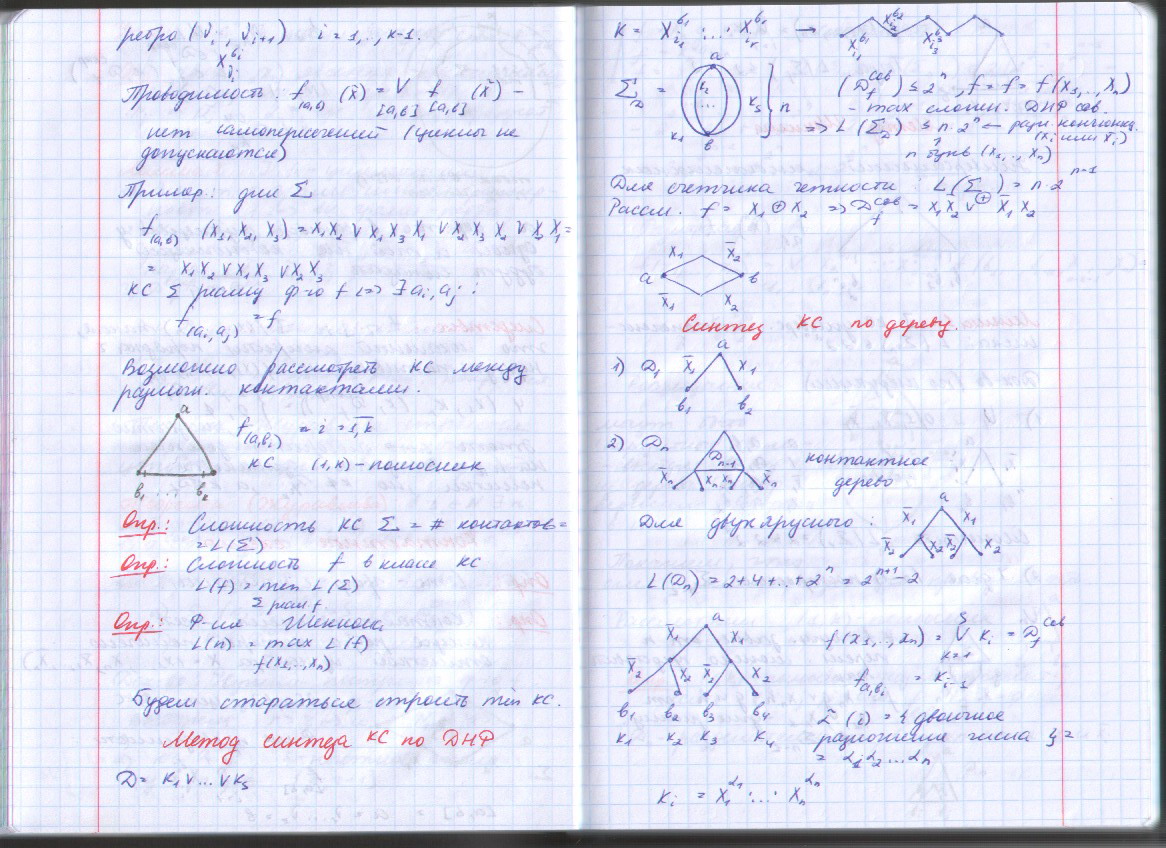 ребро (v_i, v_{i+1}) i = 1,.., k-1.
x_{j_i}^{σ_i}
Проводимость: f_{(a,b)} (x̃) = V_{[a,b]} f_{[a,b]} (x̃) –
нет самопересечений (циклы не
допускаются)
Пример: для Σ
f_{(a,b)} (x_1, x_2, x_3) = x_1 x_2 ∨ x_1 x_3 x_1 ∨ x_2 x_3 x_2 ∨ x_2 x_1 =
= x_1 x_2 ∨ x_1 x_3 ∨ x_2 x_3
КС Σ реализ ф-ю f <=> ∃ a_i, a_j :
f_{(a_i, a_j)} = f
Возможно рассмотреть КС между
различн. контактами.
a
f_{(a,b_i)} – i = 1,k
КС (1,k) – полюсник
b_1 ... b_k
Опр.: Сложность КС Σ = # контактов =
= L(Σ)
Опр.: Сложность f в классе КС
L(f) = min L(Σ)
Σ реал f
Опр.: Ф-ия Шеннона
L(n) = max L(f)
f(x_1,..,x_n)
Будем стараться строить min КС.
Метод синтеза КС по ДНФ
D = K_1 ∨ ... ∨ K_s
K = x_{i_1}^{σ_1} ... x_{i_r}^{σ_r} → x_{i_1}^{σ_1} x_{i_2}^{σ_2} x_{i_3}^{σ_3}
Σ_D = a K_1 K_2 ... K_s b } n
(D_f^{сов}) ≤ 2^n, f = f = f(x_1,..,x_n)
– max сложн. ДНФ сов.
=> L(Σ_D) ≤ n·2^n ←
(x_i или x̄_i)
n букв (x_1,..,x_n)
Для счетчика четности : L(Σ) = n·2^{n-1}
Рассм. f = x_1 ⊕ x_2 => D_f^{сов} = x_1 x̄_2 ∨ x̄_1 x_2
x_1 x̄_2
a b
x̄_1 x_2
Синтез КС по дереву.
1) D_1 a x̄_1 x_1 b_1 b_2
2) D_n D_{n-1} x̄_n x_n x̄_n x̄_n контактное
дерево
Для двухярусного : a x̄_1 x_1 x̄_2 x_2 x̄_2 x_2
L(D_n) = 2+4+..+2^n = 2^{n+1} – 2
a
x̄_1 x_1
x̄_2 x_2 x̄_2 x_2
b_1 b_2 b_3 b_4
K_1 K_2 K_3 K_4
f(x_1,..,x_n) = ∨_{k=1}^{s} K_i = D_f^{сов}
f_{a,b_i} = K_{i-1}
α̃(i) = { двоичное
разложение числа } =
= α_1 α_2 ... α_n
K_i = x_1^{α_1} ... x_n^{α_n}